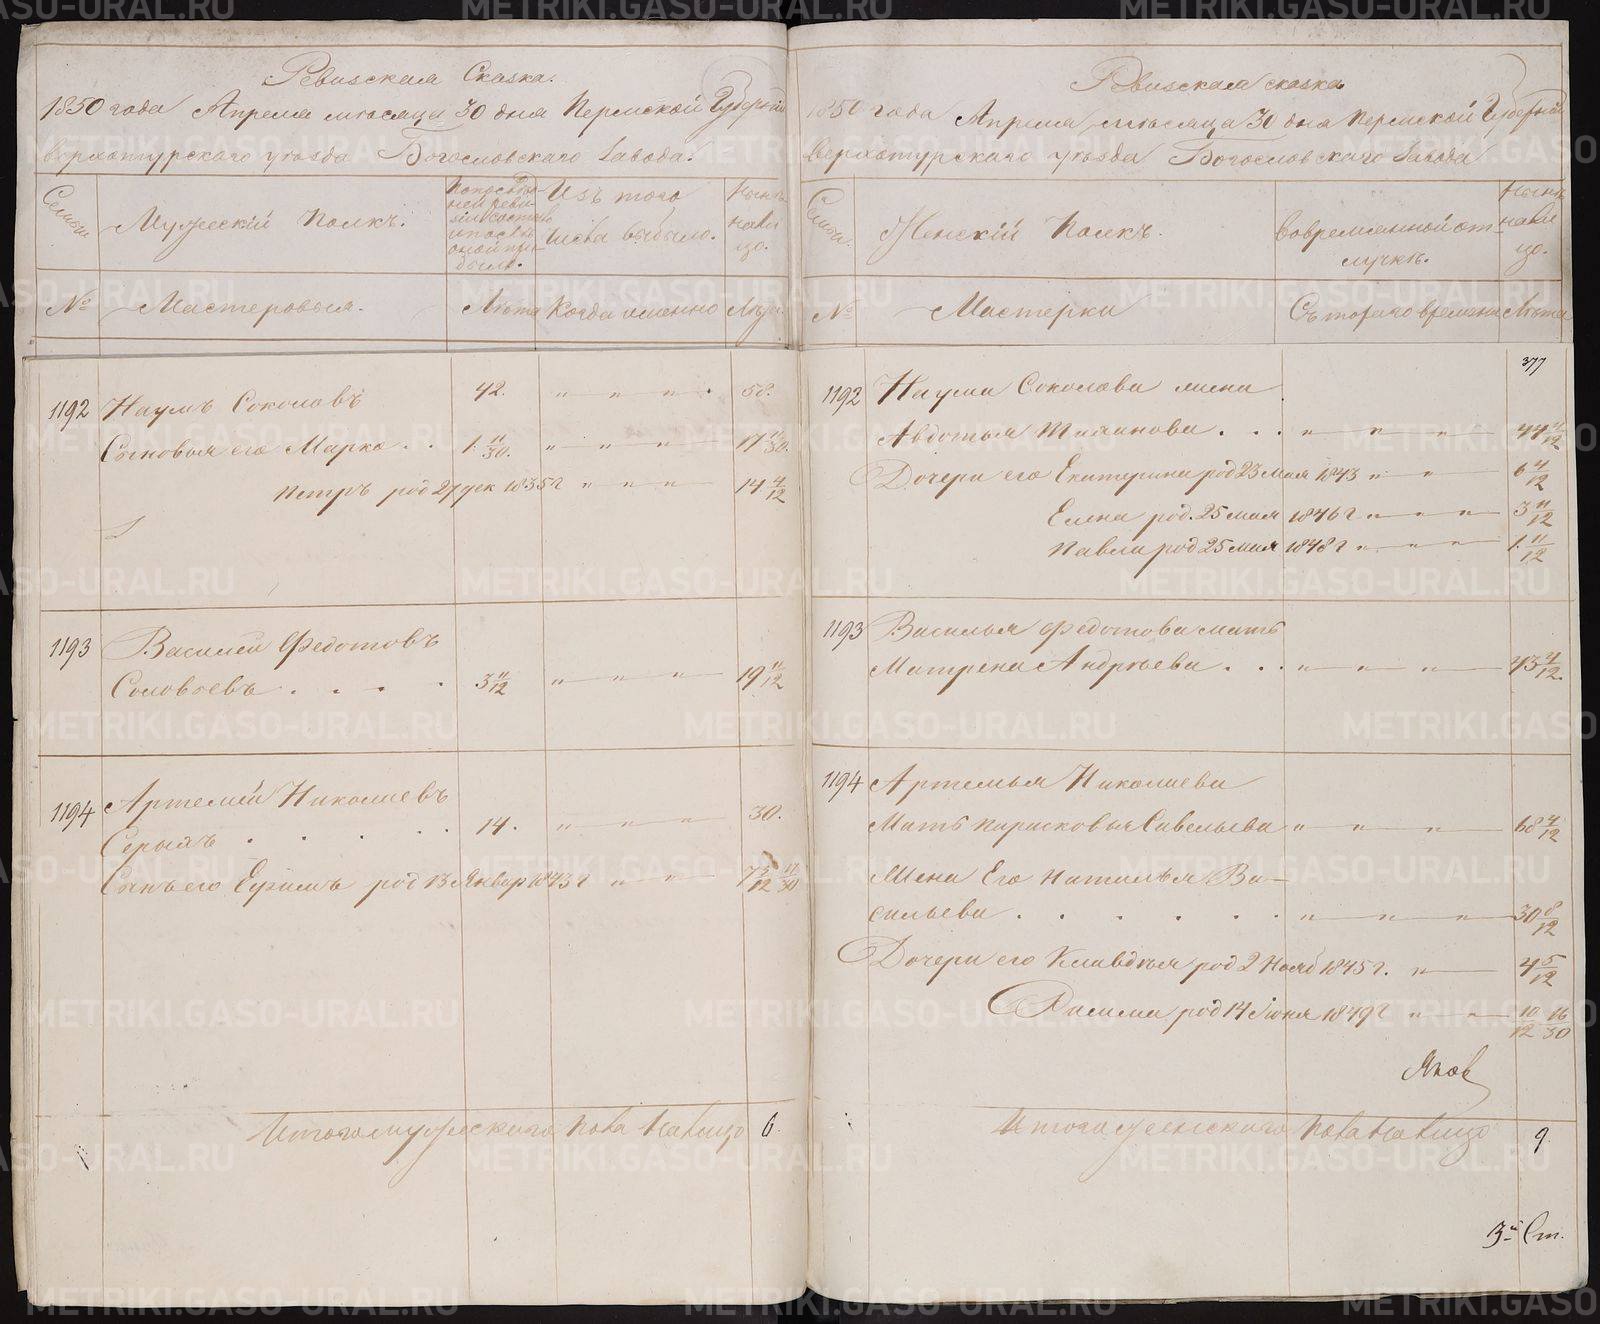 Ревизская Сказка.
1850 года Апреля месяца 30 дня Пермской Губернiи
верхотурскаго уезда Богословскаго завода.
Семьи
Мужескiй Полкъ.
По последней ревизiи состояло и после оной прибыло.
Изъ того числа выбыло.
Ныне на лицо.
№
Мастеровыя.
Лета
Когда именно
Лета.
1192 Наумъ Соколовъ 42. " " " 58.
Сыновья его Марко . . 1 11/30. " " " 17 11/30.
Петръ род 27 дек 1835 г " " " 14 4/12
1193 Василей Федотовъ
Соловьевъ . . . . 3 11/12 " " " 19 11/12
1194 Артемiй Николаевъ
Серыхъ . . . . . 14. " " " 30.
Сынъ его Ефимъ род 13 Январ 1843 г " " " 7 3/12 17/30
Итого мужескаго пола на лицо 6.
Ревизская сказка
1850 года Апреля месяца 30 дня Пермской Губернiи
верхотурскаго уезда Богословскаго завода
Семьи.
Женскiй Полкъ.
Во временной отлучке.
Ныне на лицо.
№
Мастерки
Съ котораго времени
Лета
377
1192 Наума Соколова жена
Авдотья Тиханова . . . " " " 44 11/12
Дочери его Екатерина род 23 мая 1843 " " 6 4/12
Елена род. 25 мая 1846 г " " " 3 11/12
Павла род 25 мая 1848 г " " " 1. 11/12
1193 Василья Федотова мать
Матрена Андреева . . . " " " 43 4/12.
1194 Артемья Николаева
Мать Парасковья Савельева " " " 68 4/12
Жена Его Наталья Ва-
сильева . . . . . . " " " 30 8/12
Дочери его Клавдея род 2 Нояб 1845 г. " 4 5/12
Раиса род 14 Июня 1849 г " " 10/12 16/30
Яков
Итого женскаго пола на лицо 9
3я Ст.
METRIKI.GASO-URAL.RU